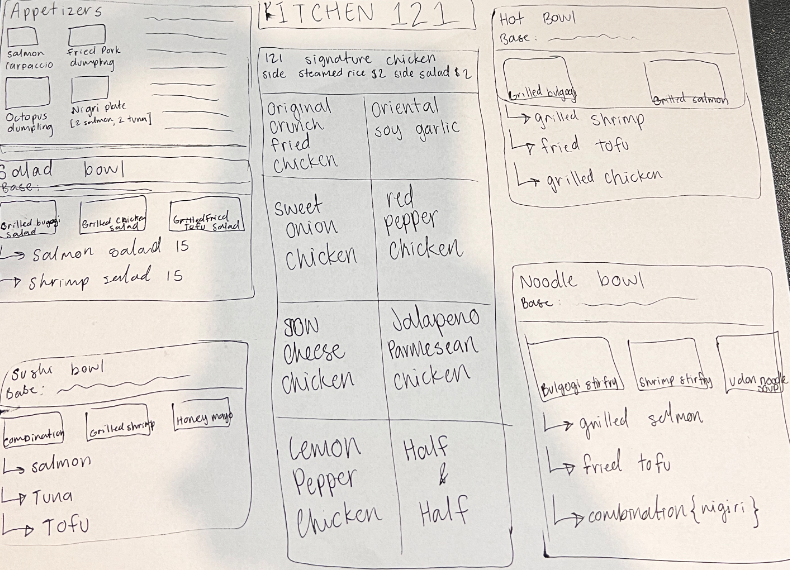 Appetizers
salmon
carpaccio
Fried Pork
dumpling
Octopus
dumpling
Nigri plate
[2 salmon, 2 tuna]
Salad bowl
Base:
Grilled bugogi
salad
Grilled Chicken
salad
Fried
Tofu salad
salmon salad 15
shrimp salad 15
Sushi bowl
Base:
combination
Grilled shrimp
Honey mayo
salmon
Tuna
Tofu
KITCHEN 121
121 signature chicken
side steamed rice $2 side salad $2
Original
crunch
fried
chicken
Oriental
soy garlic
sweet
onion
chicken
red
pepper
Chicken
cheese
chicken
Jalapeno
Parmesean
chicken
Lemon
Pepper
Chicken
Half
&
Half
Hot Bowl
Base:
Grilled bulgogi
Grilled salmon
grilled shrimp
fried tofu
grilled chicken
Noodle bowl
Base:
Bulgogi stirfry
Shrimp stirfry
Udon noodle
soup
grilled salmon
fried tofu
combination {nigiri}